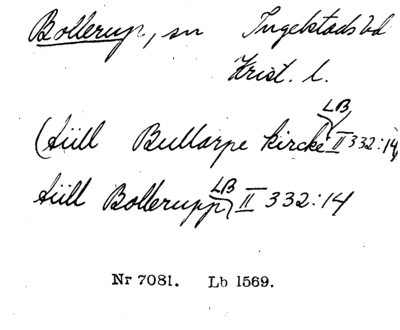 Bollerup, sn Ingelstads hd
Krist. l.
LB
(till Bullarpe kircke II 332:14)
LB
till Bollerupp) II 332:14
Nr 7081. Lb 1569.